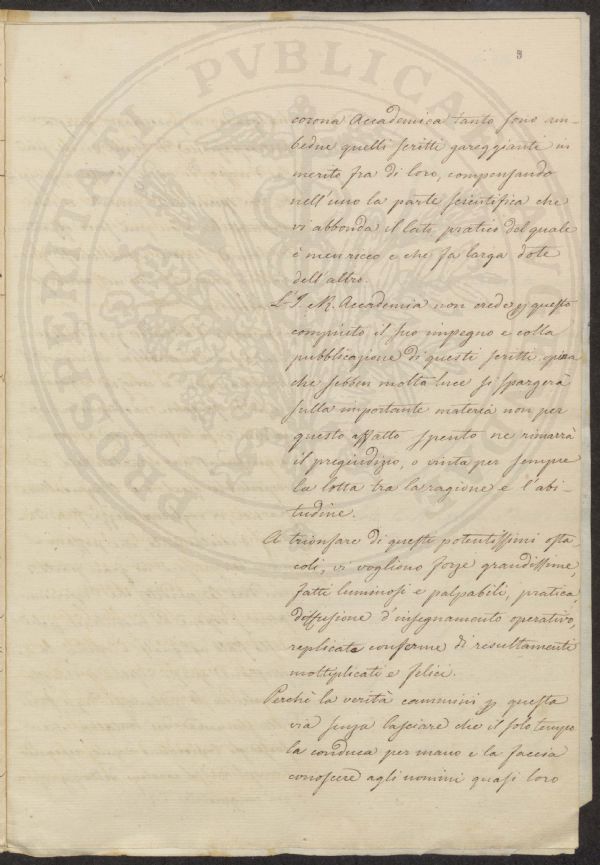 corona Accademica tanto sono am-
bedue quelli scritti gareggianti in
merito fra di loro, compensando
nell'uno la parte scientifica che
vi abbonda il lato pratico del quale
è men ricco e che fa larga dote
dell'altro.
L'I e R. Accademia non crede p questo
compiuto il suo impegno e colla
pubblicazione di questi scritti opina
che sebben molta luce si spargerà
sulla importante materia non per
questo affatto spento ne rimarrà
il pregiudizio, o vinta per sempre
la lotta tra la ragione e l'abi-
tudine.
A trionfare di questi potentissimi osta
coli, vi vogliono forze grandissime,
fatti luminosi e palpabili, pratica,
diffusione d'insegnamento operativo,
replicate conferme di resultamenti
moltiplicati e felici.
Perchè la verità cammini p questa
via senza lasciare che il solo tempo
la conduca per mano e la faccia
conoscere agli uomini quasi loro
PVBLICAE
POSTERITATI